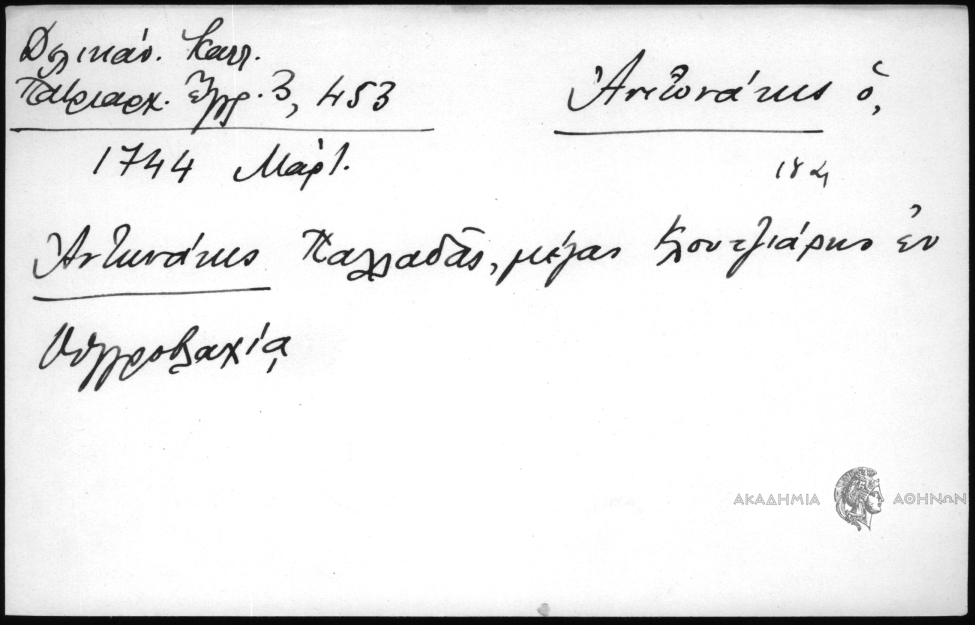 Δελικάν. Καλλ.
Πατριαρχ. ἔγγρ. 3, 453
Ἀντωνάκης ὁ,
1744 Μάρτ.
Ἀντωνάκης Παλλαδᾶς, μέγας Κλουτζιάρης ἐν
Οὐγγροβλαχίᾳ
ΑΚΑΔΗΜΙΑ ΑΘΗΝΩΝ